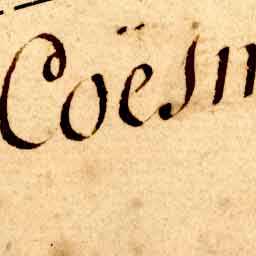 Coësm